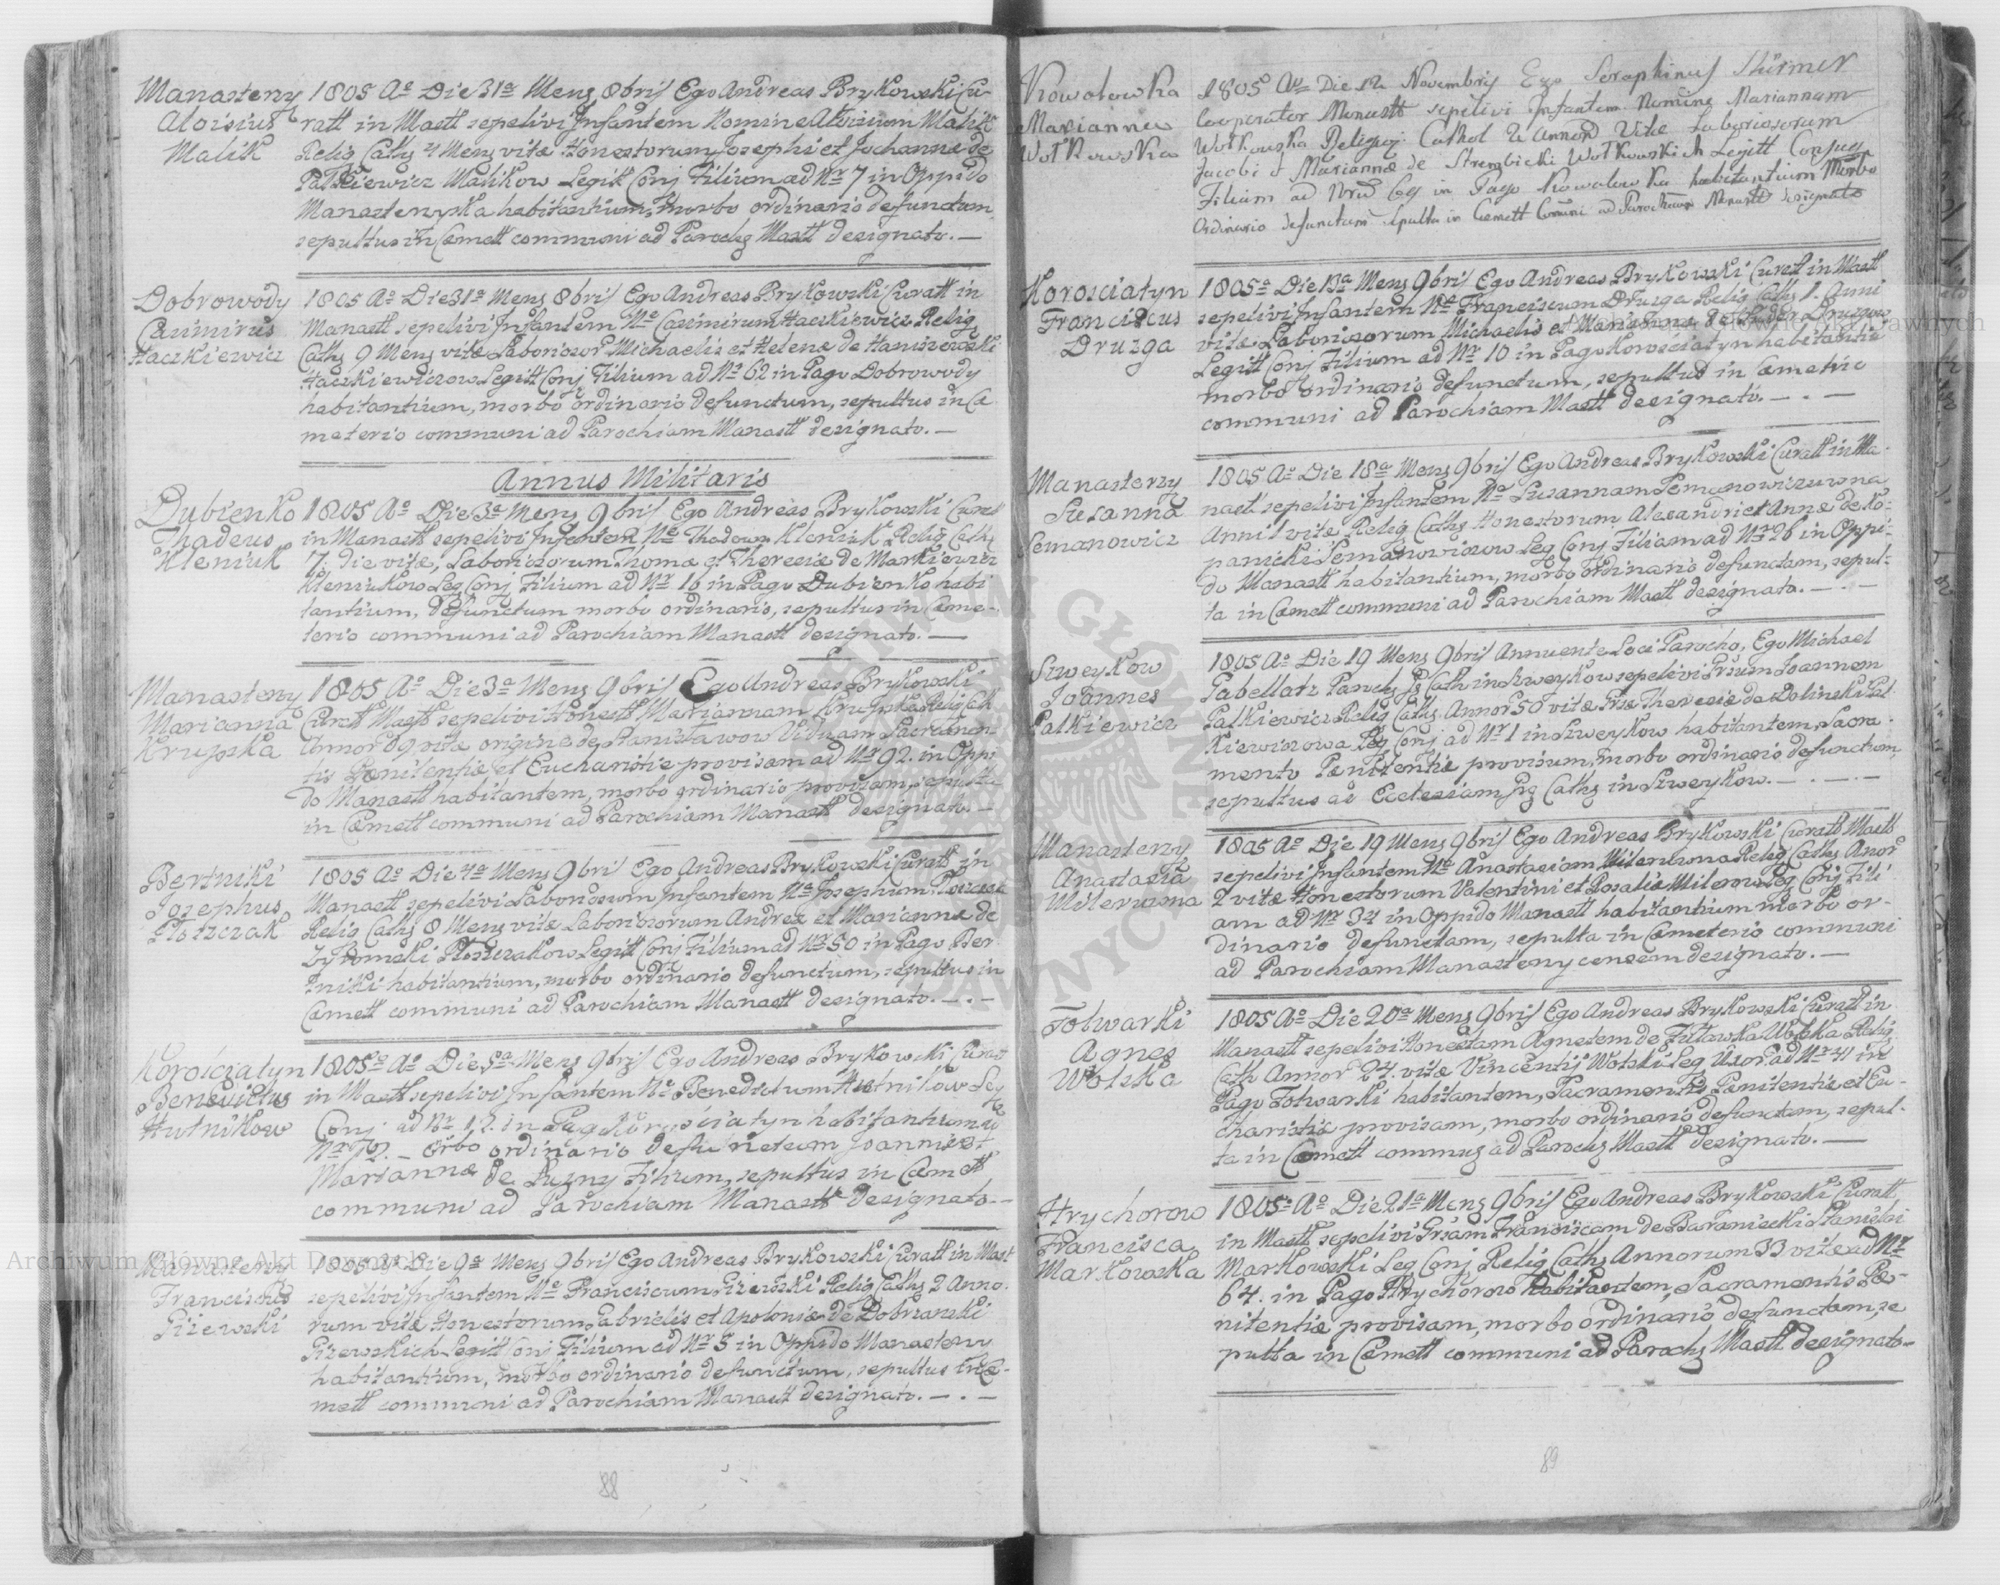 Manasterzy
Aloisius
Malik
1805 Aº Die 31ª Mens 8bris Ego Andreas Brykowski Cu-
ratt in Mastt sepelivi Infantem Nomine Aloisium Malik
Relig Cathq 4 Mens vitæ Honestorum Josephi et Johannæ de
Patkiewicz Malikow Legitt Conj Filium ad Nr 7 in Oppido
Manasterzyska habitantium, morbo ordinario defunctum
sepultus in Cæmett communi ad Parochq Mastt designato. —
Dobrowody
Casimirus
Haczkiewicz
1805 Aº Die 31ª Mens 8bris Ego Andreas Brykowski Curatt in
Manastt sepelivi Infantem Ne Casimirum Haczkiewicz Relig
Cathq 9 Mens vitæ Laboriosor Michaelis et Helenæ de
Haczkiewiczow Legitt Conj Filium ad Nr 62 in Pago Dobrowody
habitantium, morbo ordinario defunctum, sepultus in Cæ
meterio communi ad Parochiam Manastt designato. —
Annus Militaris
Dubienko
Thadeus
Kleniuk
1805 Aº Die 3ª Mens 9bris Ego Andreas Brykowski Curatt
in Manastt sepelivi Infantem Ne Thadeum Kleniuk Relig Cathq
7. Die vitæ, Laboriosorum Thomæ et Theresiæ de Markiewicz
Kleniukow Leg Conj Filium ad Nr 16 in Pago Dubienko habi
tantium, defunctum morbo ordinario, sepultus in Cæme-
terio communi ad Parochiam Manastt designato. —
Manasterzy
Marianna
Krupska
1805 Aº Die 3ª Mens 9bris Ego Andreas Brykowski
Curatt Mastt sepelivi Honestt Mariannam Krupska Relig Cath
Annor 89 vitæ origine de Stanisławow Viduam Sacramen
tis Pænitentiæ et Eucharistiæ provisam ad Nr 92. in Oppi
do Manastt habitantem, morbo ordinario provisam, sepulta
in Cæmett communi ad Parochiam Manastt designato. —
Bertniki
Josephus
Płoszczak
1805 Aº Die 4ª Mens 9bris Ego Andreas Brykowski Curatt in
Manastt sepelivi Laboriosum Infantem Ne Josephum Płoszczak
Relig Cathq 8 Mens vitæ Laboriosorum Andreæ et Mariannæ de
Płoszczakow Legitt Conj Filium ad Nr 50 in Pago Ber
tniki habitantium, morbo ordinario defunctum, sepultus in
Cæmett communi ad Parochiam Manastt designato. — . —
Korościatyn
Benedictus
Hutnikow
1805 Aº Die 5ª Mens 9bris Ego Andreas Brykowski Curatt
in Mastt sepelivi Infantem Ne Benedictum Hutnikow Leg
Conj ad Nr 12. in Pago Korościatyn habitantium
Nr 12. — orbo ordinario defunctum Joannis et
Mariannæ de Luzny Filium, sepultus in Cæmett
communi ad Parochiam Manastt designato. —
Manasterzy
Franciscus
Giżewski
1805 Aº Die 9ª Mens 9bris Ego Andreas Brykowski Curatt in Mast
sepelivi Infantem Ne Franciscum Giżewski Relig Cathq 2 Anno-
rum vitæ Honestorum Gabrielis et Apoloniæ de Dobrzanski
Giżewskich Legitt Conj Filium ad Nr 5 in Oppido Manasterzy
habitantium, morbo ordinario defunctum, sepultus in Cæ-
mett communi ad Parochiam Manastt designato. — . —
88
Kowalowka
Marianna
Wołkowska
1805 Aº Die 12 Novembris Ego Seraphinus Stürmer
Cooperator Manastt sepelivi Infantem Nomine Mariannam
Wołkowska Religq Cathol 2 Annor Vitæ Laboriosorum
Jacobi et Mariannæ de Strembicki Wołkowskich Legitt Conjug
Filiam ad Nrum 69 in Pago Kowalowka habitantium Morbo
Ordinario defunctum sepulta in Cæmett Comuni ad Parochiam Manastt designato
Korosciatyn
Franciscus
Druzga
1805ª Die 13ª Mens 9bris Ego Andreas Brykowski Curatt in Mastt
sepelivi Infantem Ne Franciscum Druzga Relig Cathq 1. Anni
vitæ Laboriosorum Michaelis et Mariannæ de Druzgow
Legitt Conj Filium ad Nr 10 in Pago Korosciatyn habitantis
morbo ordinario defunctum, sepultus in Cæmetrio
communi ad Parochiam Mastt designato. — . —
Manasterzy
Susanna
Semanowicz
1805 Aº Die 18ª Mens 9bris Ego Andreas Brykowski Curatt in Ma-
nastt sepelivi Infantem Ne Susannam Semanowiczuwna
Anni 1 vitæ Relig Cathq Honestorum Alexandri et Annæ de Ko-
panicki Semanowiczow Leg Conj Filiam ad Nr 26 in Oppi-
do Manastt habitantium, morbo ordinario defunctam, sepul-
ta in Cæmett communi ad Parochiam Mastt designato. — . —
Szweykow
Joannes
Patkiewicz
1805 Aº Die 19 Mens 9bris Annuente Loci Parocho, Ego Michael
Gabellatz Paroch Gq Cath in Szweykow sepelivi Grsum Joannem
Patkiewicz Relig Cathq Annor 50 vitæ Grsæ Theresiæ de Dolinski Pat
kiewiczowa Leg Conj ad Nr 1 in Szweykow habitantem, Sacra-
mento Pænitentiæ provisum, morbo ordinario defunctum,
sepultus ad Ecclesiam Gq Cathq in Szweykow. — . — . —
Manasterzy
Anastasia
Milerowna
1805 Aº Die 19 Mens 9bris Ego Andreas Brykowski Curatt Mastt
sepelivi Infantem Ne Anastasiam Milerowna Relig Cathq Anor
2 vitæ Honestorum Valentini et Rosaliæ Milerow Leg Conj Fili
am ad Nr 34 in Oppido Manastt habitantium morbo or-
dinario defunctam, sepulta in Cæmeterio communi
ad Parochiam Manasterzycensem designato. —
Folwarki
Agnes
Wolska
1805 Aº Die 20ª Mens 9bris Ego Andreas Brykowski Curatt in
Manastt sepelivi Honestam Agnetem de Wolska Relig
Cath Annor 27. vitæ Vincentij Wolski Leg Uxor ad Nr 41 in
Pago Folwarki habitantem, Sacramentis Pænitentiæ et Eu-
charistiæ provisam, morbo ordinario defunctam, sepul-
ta in Cæmett communi ad Parochq Mastt designato. —
Hrychorow
Francisca
Markowska
1805 Aº Die 21ª Mens 9bris Ego Andreas Brykowski Curatt
in Mastt sepelivi Grsam Franciscam de Baraniecki Stanislai
Markowski Leg Conj Relig Cathq Annorum 33 vitæ ad Nr
64. in Pago Hrychorow habitantem, Sacramentis Pæ-
nitentiæ provisam, morbo ordinario defunctam, se
pulta in Cæmett communi ad Parochq Mastt designato —
89
Archiwum Główne Akt Dawnych
Archiwum Główne Akt Dawnych
ARCHIWUM GŁÓWNE AKT DAWNYCH